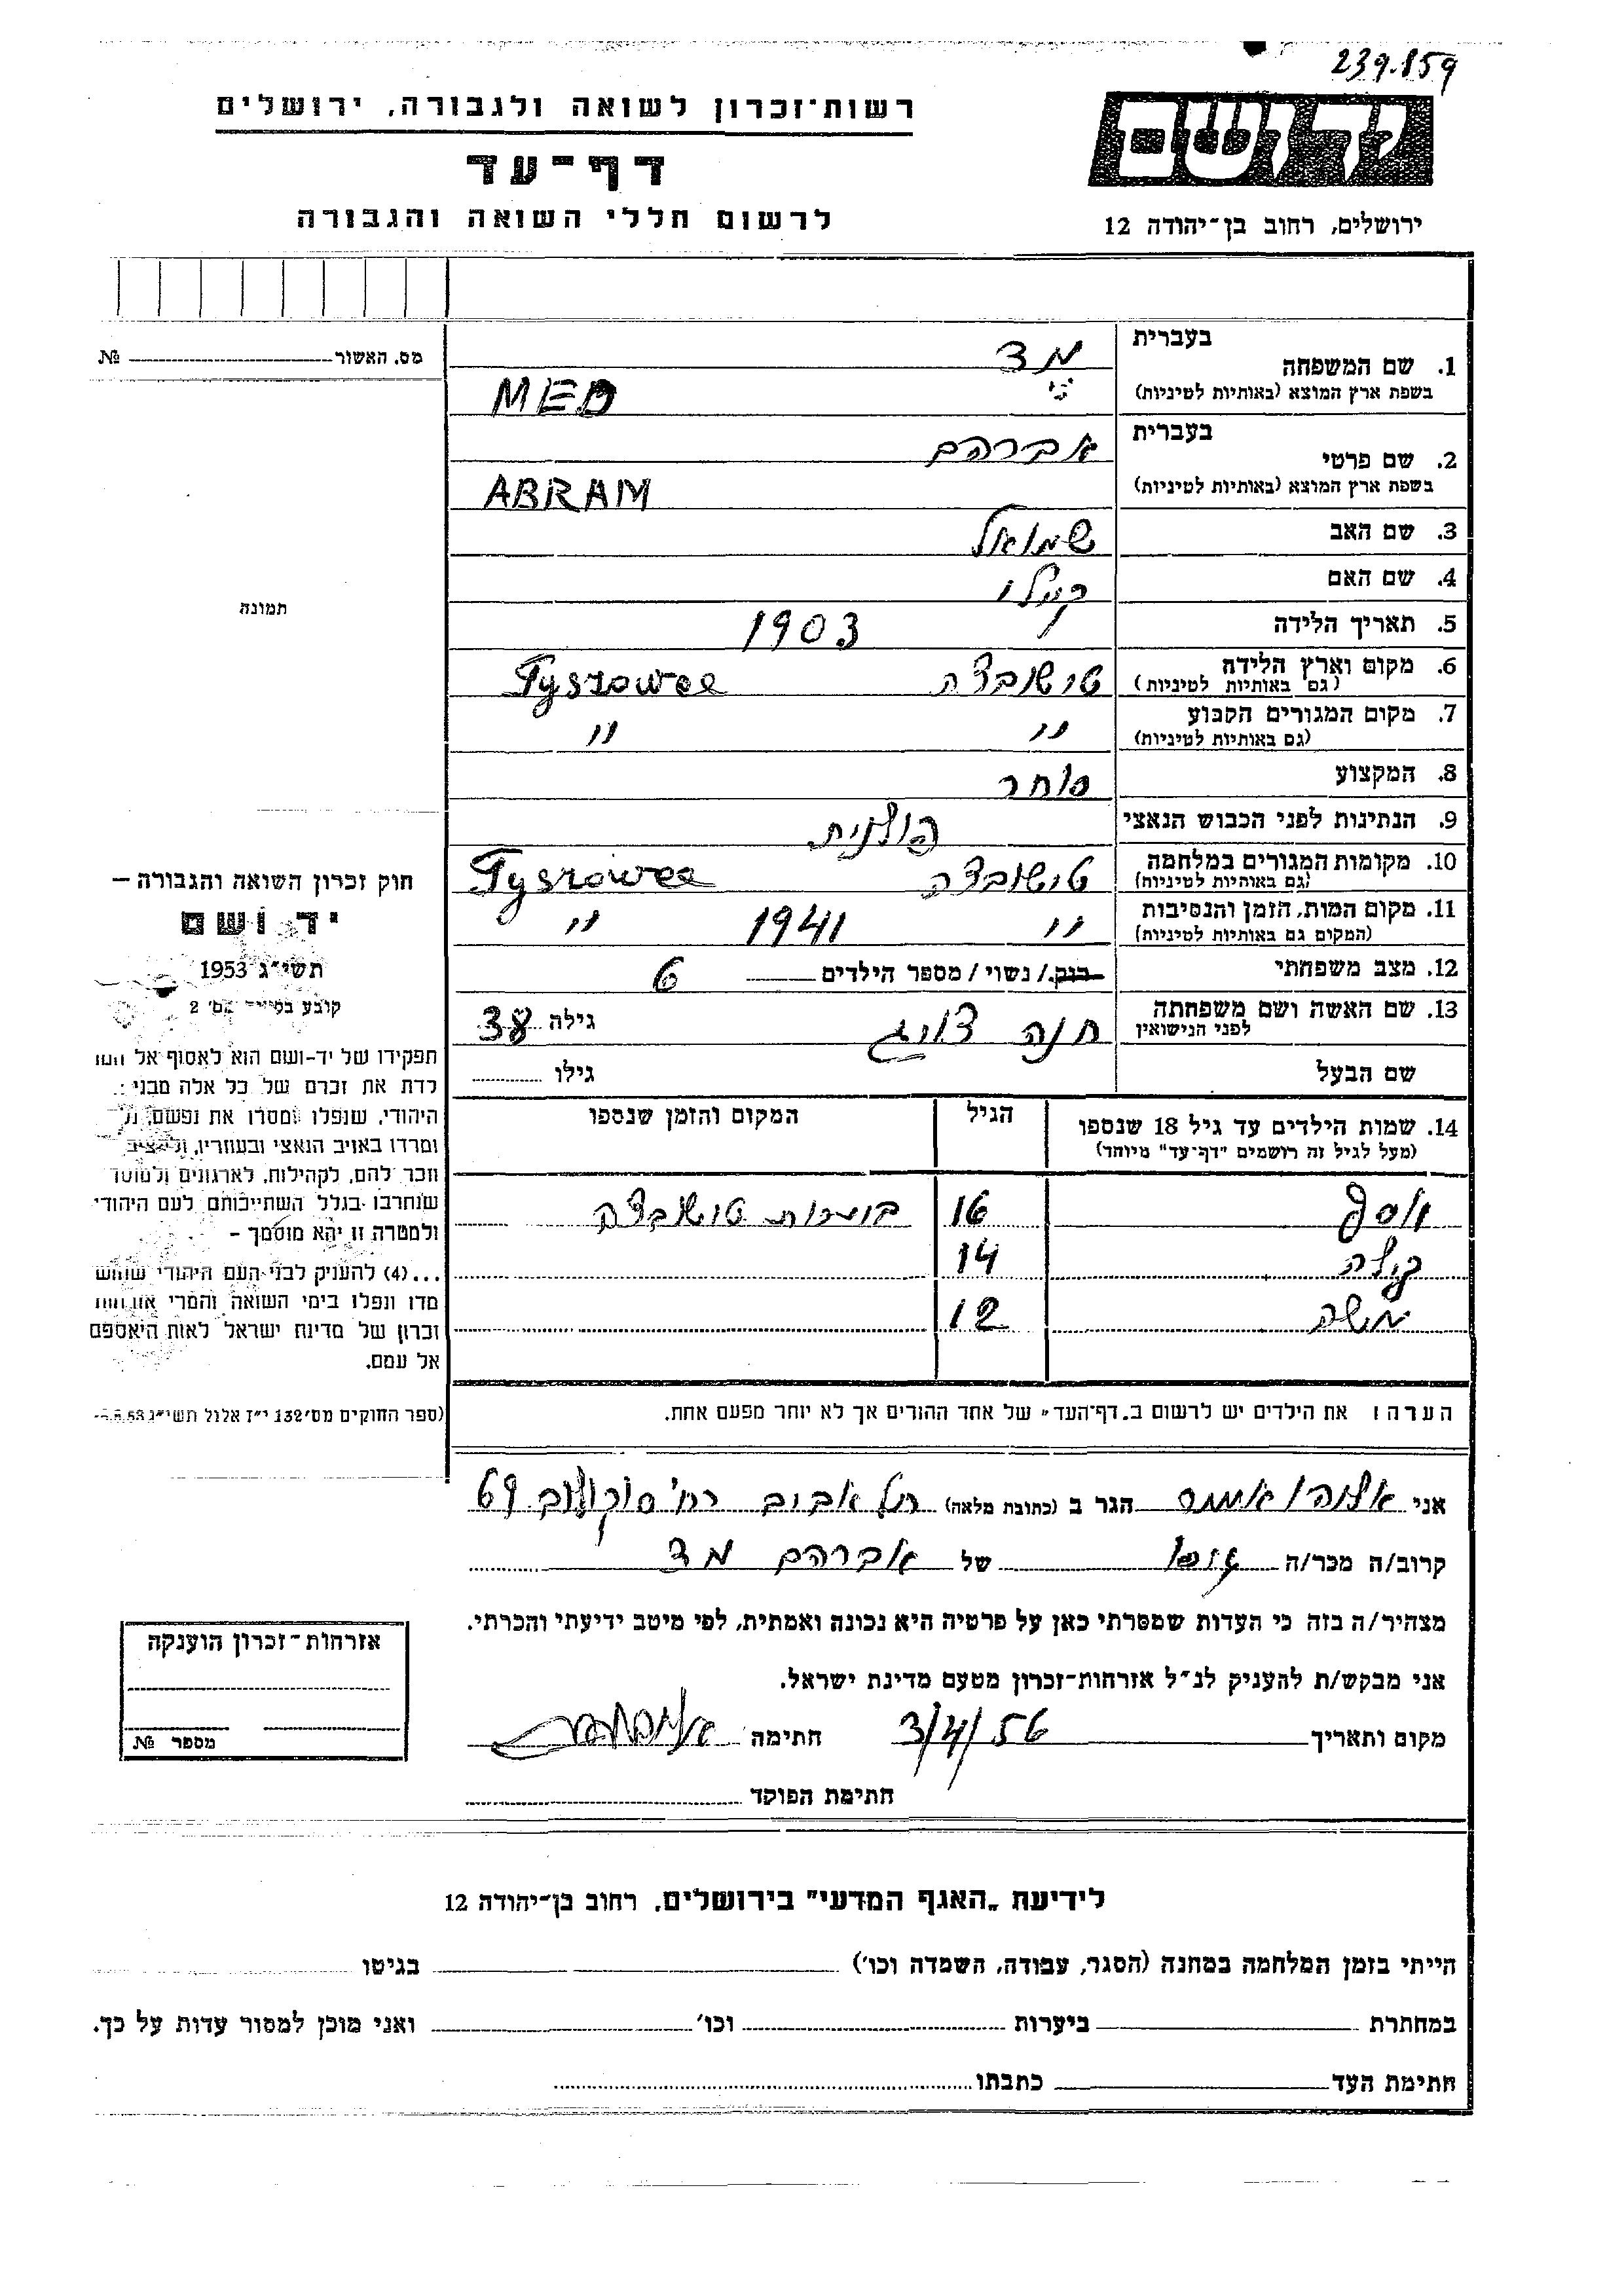 239.859
ידושם
רשות־זכרון לשואה ולגבורה, ירושלים
דף־עד
לרשום חללי השואה והגבורה
ירושלים, רחוב בן־יהודה 12
מס. האשור № 
בעברית
1. שם המשפחה מד
בשפת ארץ המוצא (באותיות לטיניות) MED
בעברית
2. שם פרטי אברהם
בשפת ארץ המוצא (באותיות לטיניות) ABRAM
3. שם האב שמואל
4. שם האם
5. תאריך הלידה 1903
6. מקום וארץ הלידה טישובצה Tyszowce
(גם באותיות לטיניות)
7. מקום המגורים הקבוע " "
(גם באותיות לטיניות)
8. המקצוע סוחר
9. הנתינות לפני הכבוש הנאצי פולנית
10. מקומות המגורים במלחמה טישובצה Tyszowce
(גם באותיות לטיניות)
11. מקום המות, הזמן והנסיבות " 1941 "
(המקום גם באותיות לטיניות)
12. מצב משפחתי רווק / נשוי / מספר הילדים 6
13. שם האשה ושם משפחתה חנה צויג גילה 38
לפני הנישואין
שם הבעל גילו
תמונה
חוק זכרון השואה והגבורה –
יד ושם
תשי"ג 1953
קובע בסעיף מס' 2
תפקידו של יד-ושם הוא לאסוף אל המו
לדת את זכרם של כל אלה מבני
היהודי, שנפלו ומסרו את נפשם,
ומרדו באויב הנאצי ובעוזריו, ולהציב
וזכר להם, לקהילות, לארגונים ולמוסד
שנחרבו בגלל השתייכותם לעם היהודי
ולמטרה זו יהא מוסמך –
...(4) להעניק לבני העם היהודי שהוש
מדו ונפלו בימי השואה והמרי אזרחות
זכרון של מדינת ישראל לאות היאספם
אל עמם.
(ספר החוקים מס' 132 י"ז אלול תשי"ג
14. שמות הילדים עד גיל 18 שנספו הגיל המקום והזמן שנספו
(מעל לגיל זה רושמים "דף-עד" מיוחד)
יוסף 16 טישובצה
14
משה 12
הערה: את הילדים יש לרשום ב„דף־העד" של אחד ההורים אך לא יותר מפעם אחת.
אני הגר ב (כתובת מלאה) תל אביב רח' סוקולוב 69
קרוב/ה מכר/ה של אברהם מד
מצהיר/ה בזה כי העדות שמסרתי כאן על פרטיה היא נכונה ואמתית, לפי מיטב ידיעתי והכרתי.
אני מבקש/ת להעניק לנ"ל אזרחות־זכרון מטעם מדינת ישראל.
מקום ותאריך 3/4/56 חתימה
חתימת הפוקד
אזרחות־זכרון הוענקה
מספר №
לידיעת „האגף המדעי" בירושלים, רחוב בן־יהודה 12
הייתי בזמן המלחמה במחנה (הסגר, עבודה, השמדה וכו') בגיטו
במחתרת ביערות וכו' ואני מוכן למסור עדות על כך.
חתימת העד כתבתו